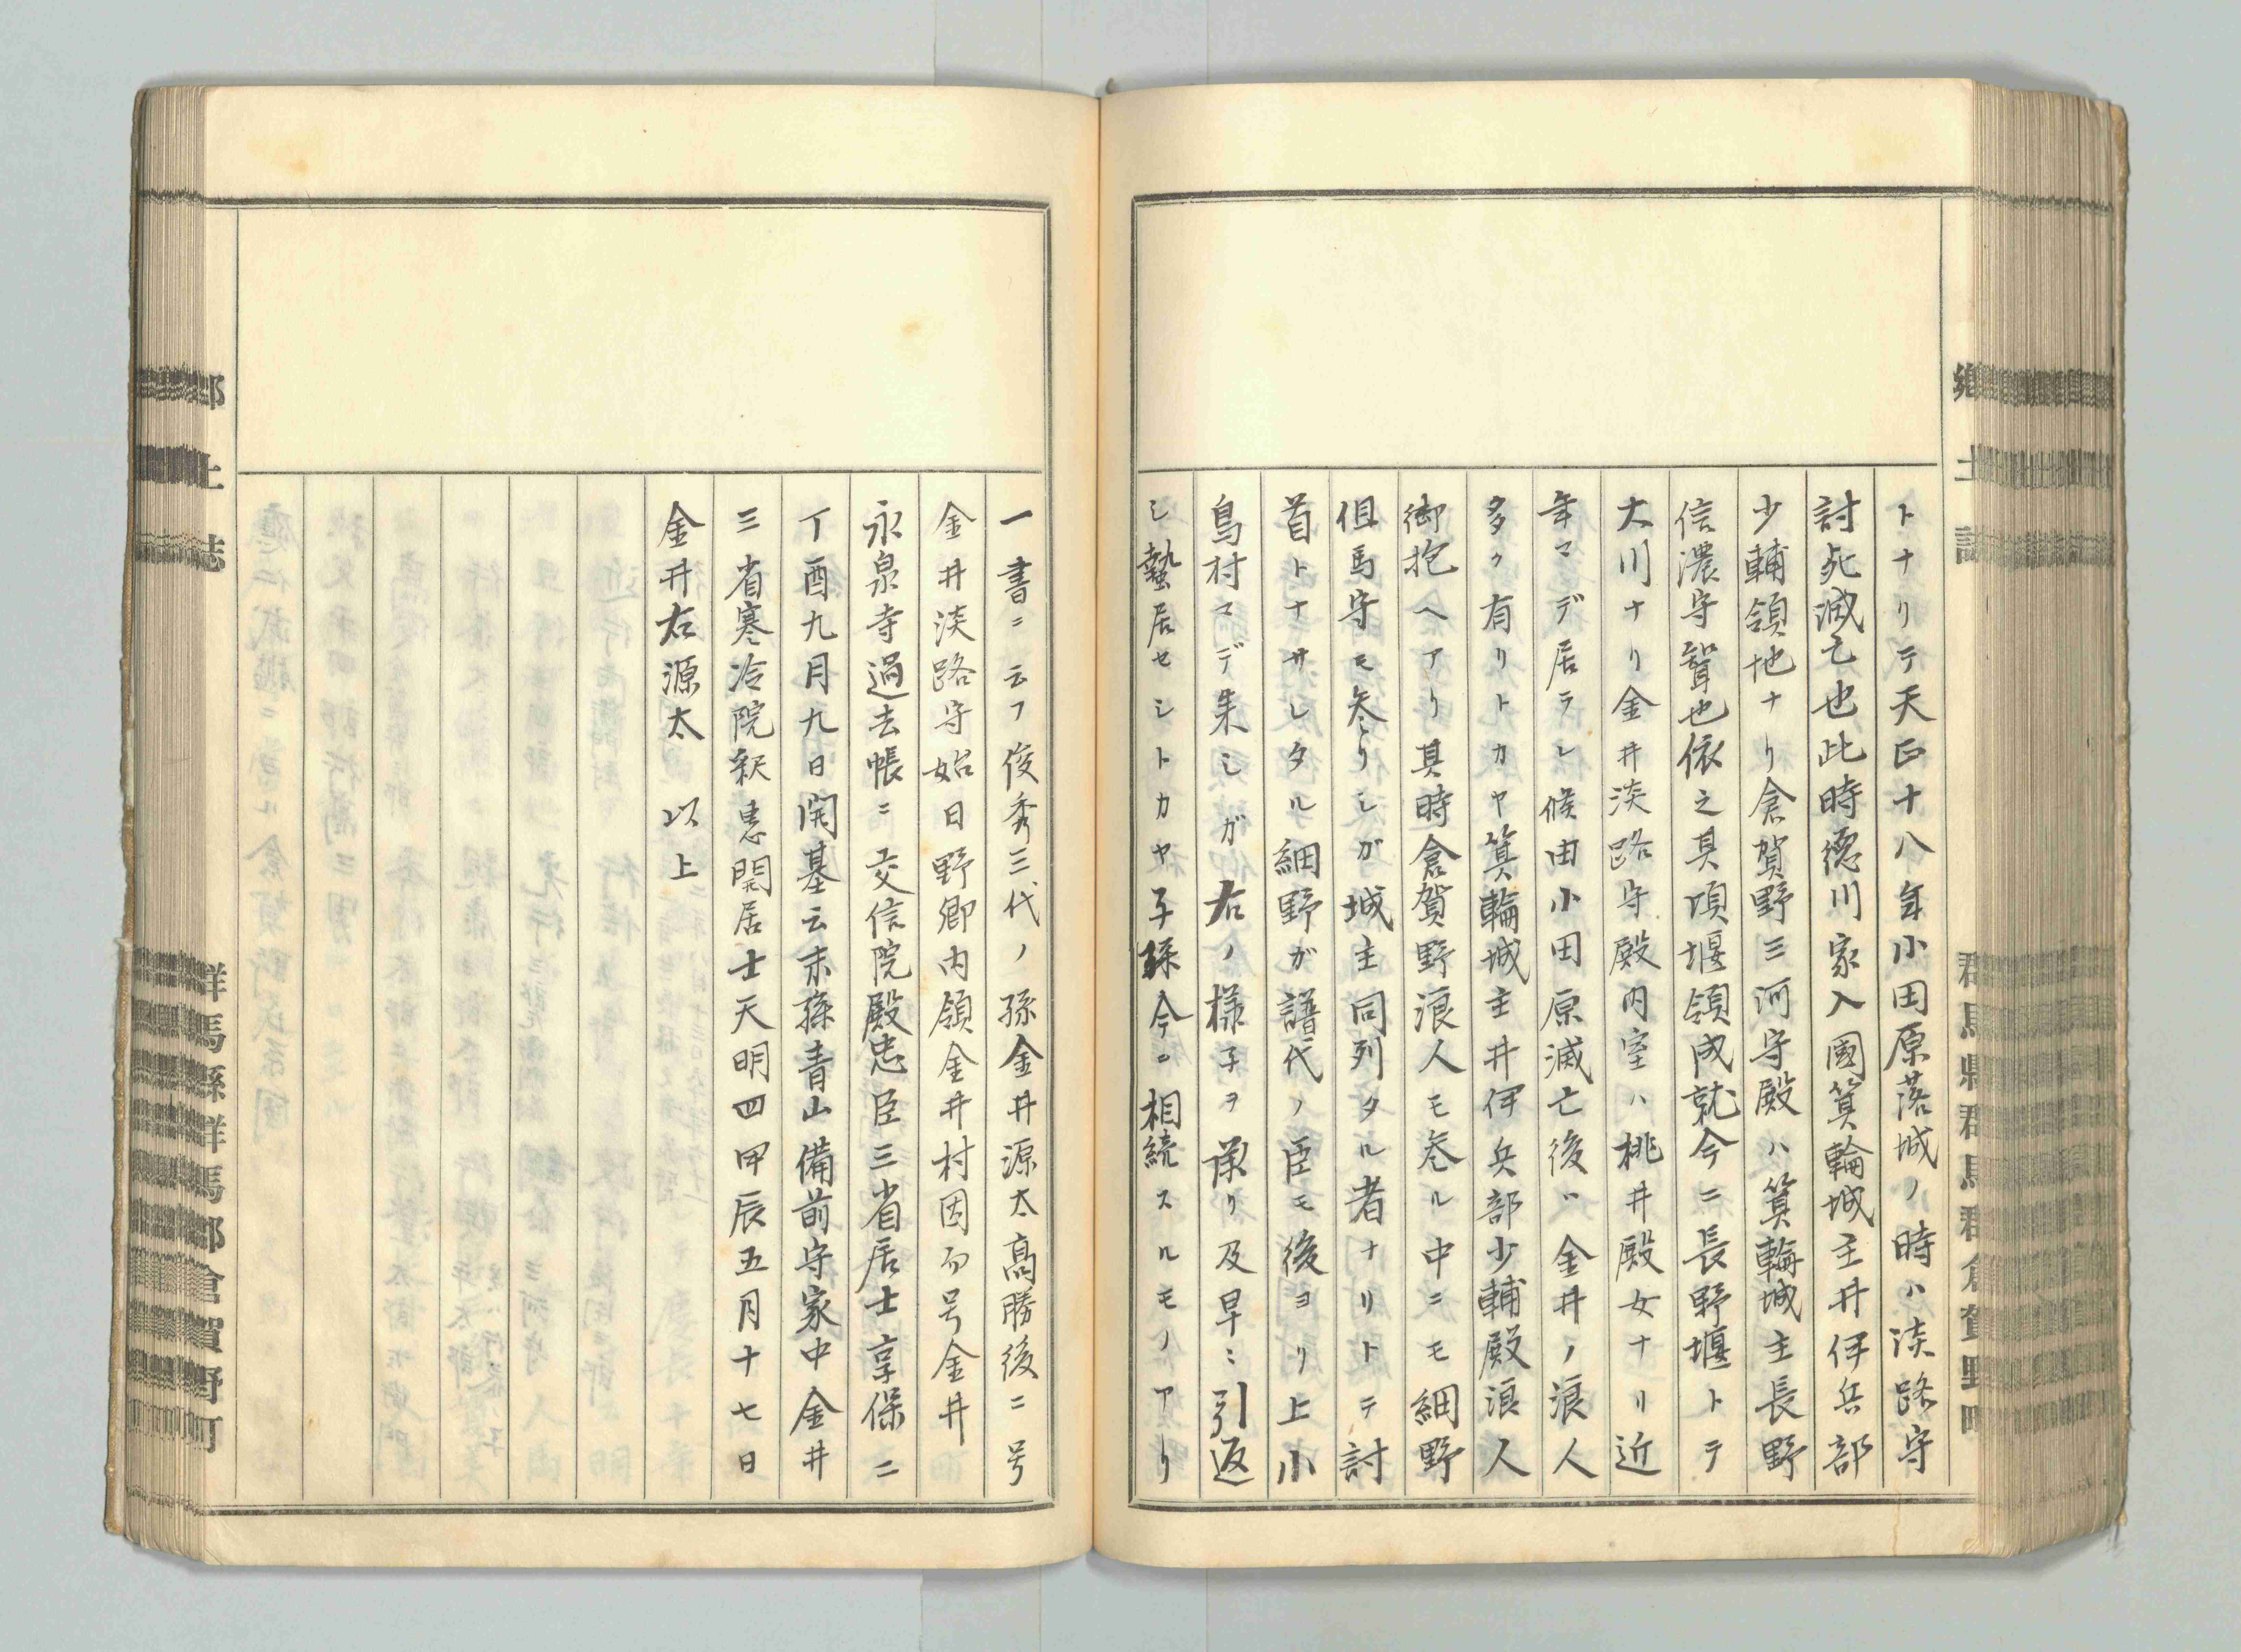 郷土誌
群馬縣群馬郡倉賀野町
トナリテ天正十八年小田原落城ノ時ハ淡路守
討死滅亡也此時德川家入國箕輪城主井伊兵部
少輔領地ナリ倉賀野三河守殿ハ箕輪城主長野
信濃守聟也依之其頃堰領成就今ニ長野堰トテ
大川ナリ金井淡路守殿内室ハ桃井殿女ナリ近
年マデ居ラレ候由小田原滅亡後ハ金井ノ浪人
多ク有リトカヤ箕輪城主井伊兵部少輔殿浪人
御抱ヘアリ其時倉賀野浪人モ参ル中ニモ細野
伹馬守モ参リシガ城主同列タル者ナリトテ討
首トナサレタル細野ガ譜代ノ臣モ後ヨリ上小
鳥村マデ来シガ右ノ様子ヲ承リ及早ニ引返
シ蟄居セシトカヤ子孫今ニ相続スルモノアリ
一書ニ云フ俊秀三代ノ孫金井源太高勝後ニ号
金井淡路守始日野郷内領金井村因而号金井
永泉寺過去帳ニ交信院殿忠臣三省居士享保二
丁酉九月九日開基云末孫青山備前守家中金井
三省寒冷院釈恵開居士天明四甲辰五月十七日
金井右源太 以上
郷土誌
群馬縣群馬郡倉賀野町